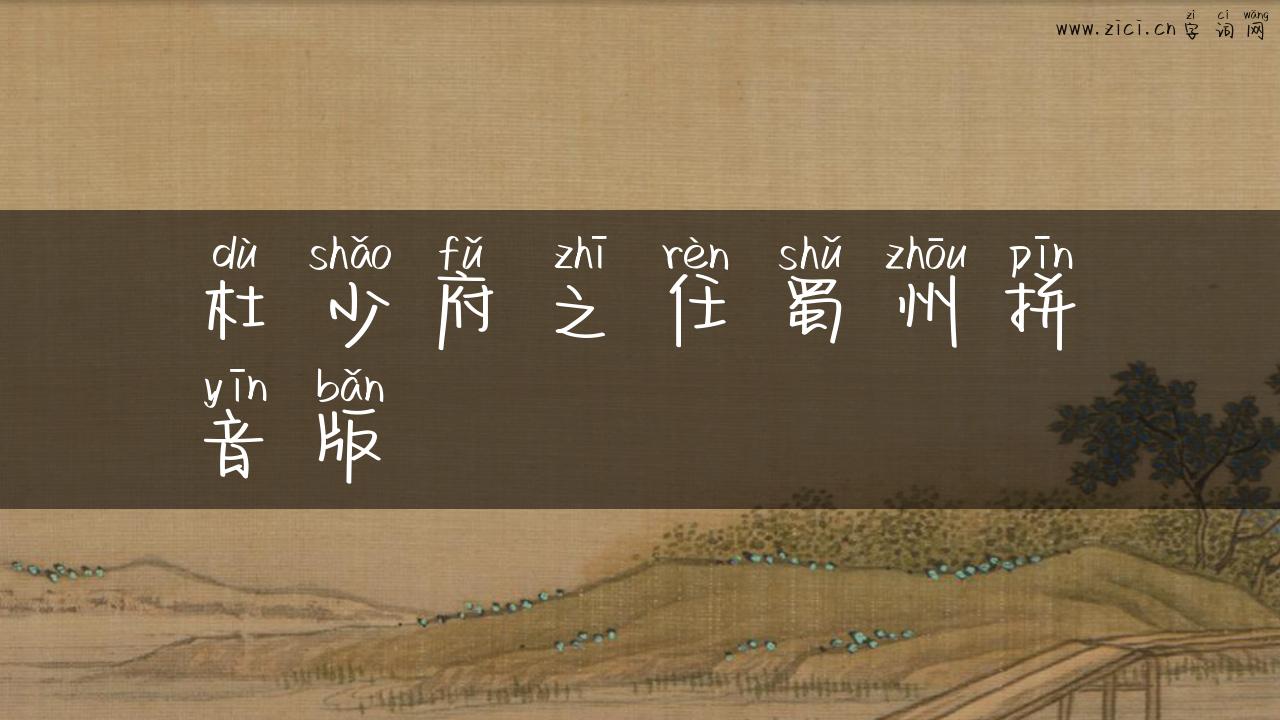 zì cí wǎng
www.zici.cn 字词网
dù shǎo fǔ zhī rèn shǔ zhōu pīn
杜少府之任蜀州拼
yīn bǎn
音版